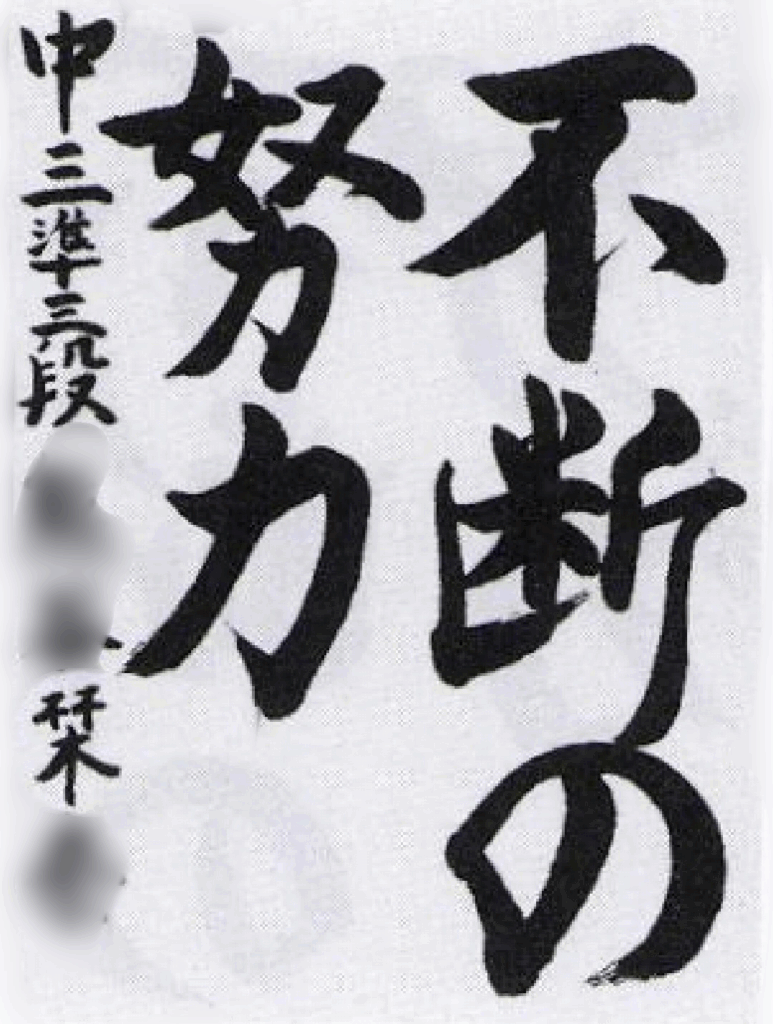 不断の
努力
中三準三段 栞